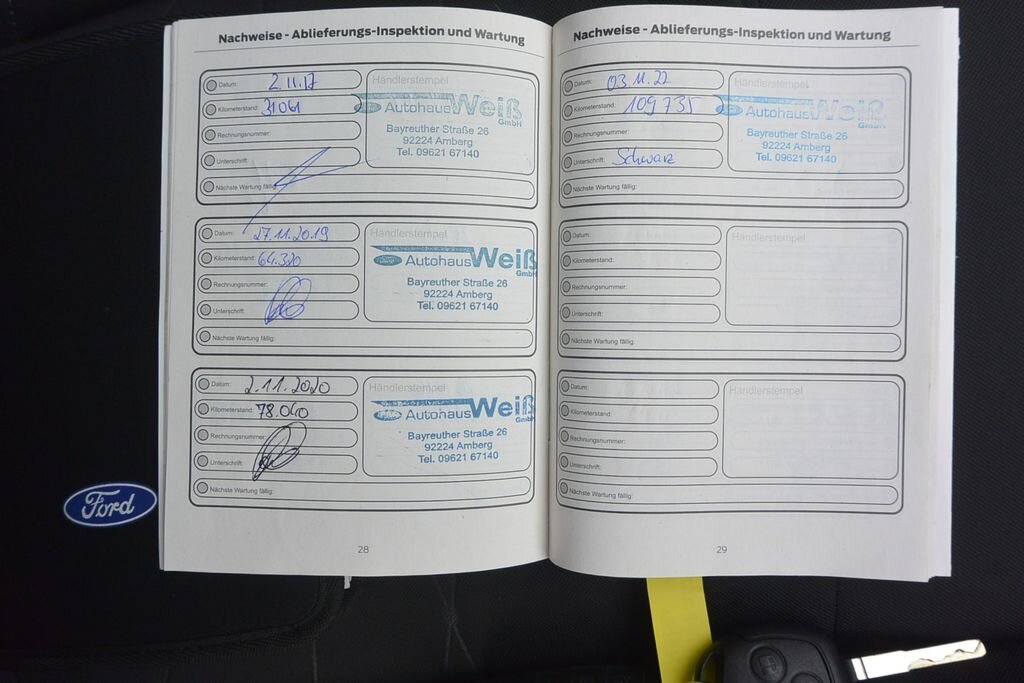 Nachweise - Ablieferungs-Inspektion und Wartung
Datum: 2.11.17
Kilometerstand: 31041
Rechnungsnummer:
Unterschrift:
Nächste Wartung fällig:
Händlerstempel
Autohaus Weiß
GmbH
Bayreuther Straße 26
92224 Amberg
Tel. 09621 67140
Datum: 27.11.2019
Kilometerstand: 64.320
Rechnungsnummer:
Unterschrift:
Nächste Wartung fällig:
Händlerstempel
Autohaus Weiß
GmbH
Bayreuther Straße 26
92224 Amberg
Tel. 09621 67140
Datum: 2.11.2020
Kilometerstand: 78.040
Rechnungsnummer:
Unterschrift:
Nächste Wartung fällig:
Händlerstempel
Autohaus Weiß
GmbH
Bayreuther Straße 26
92224 Amberg
Tel. 09621 67140
28
Nachweise - Ablieferungs-Inspektion und Wartung
Datum: 03.11.22
Kilometerstand: 109735
Rechnungsnummer:
Unterschrift: Schwarz
Nächste Wartung fällig:
Händlerstempel
Autohaus Weiß
GmbH
Bayreuther Straße 26
92224 Amberg
Tel. 09621 67140
Datum:
Kilometerstand:
Rechnungsnummer:
Unterschrift:
Nächste Wartung fällig:
Händlerstempel
Datum:
Kilometerstand:
Rechnungsnummer:
Unterschrift:
Nächste Wartung fällig:
Händlerstempel
29
Ford